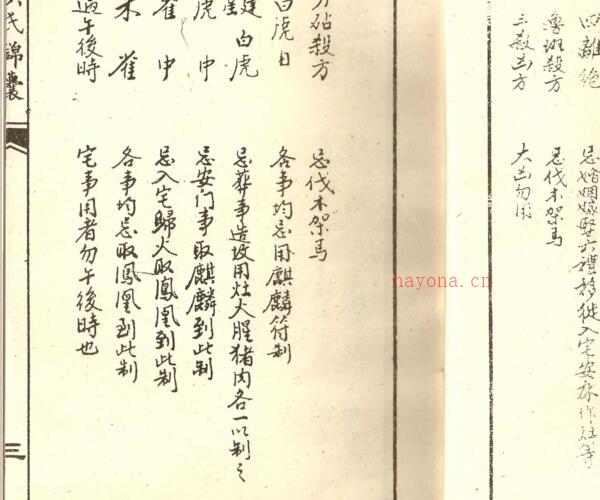 四離絕
忌婚姻嫁娶六禮移徙入宅安床作灶等
魯班殺方
忌伐木架馬
三殺凶方
大凶勿用
刀砧殺方
忌伐木架馬
白虎日
各事均忌用麒麟符制
白虎
忌葬事造坟用灶火腥猪肉各一以制之
虎中
忌安门事取麒麟到此制
雀中
忌入宅歸火取鳳凰到此制
朱雀
各事均忌取鳳凰到此制
過午後時
宅事用者勿午後時也
氏錦囊
三
nayona.cn